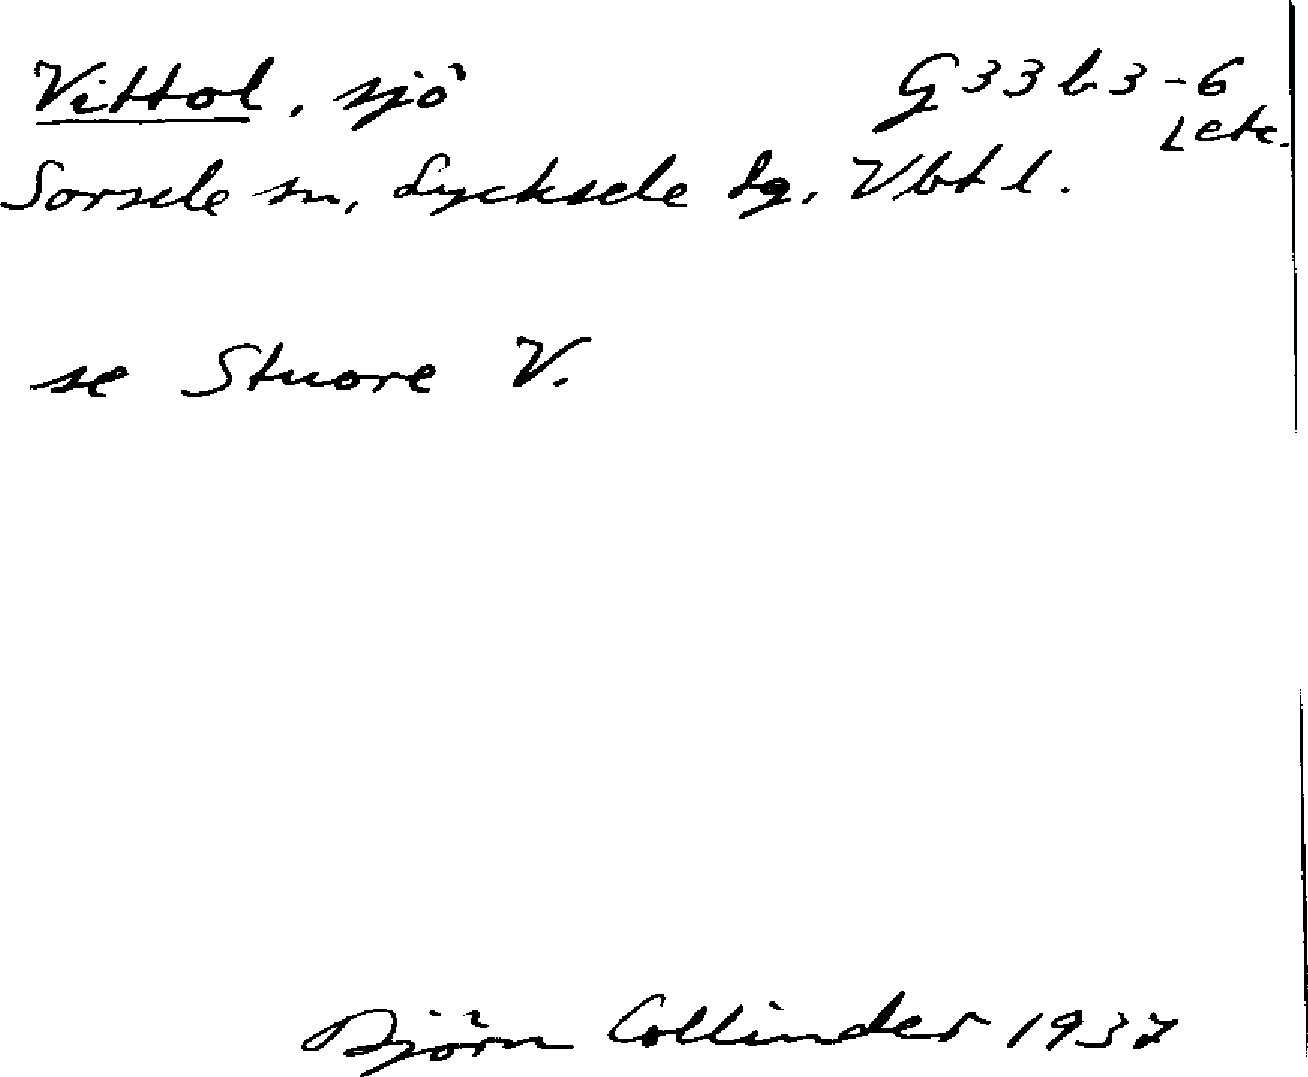 Vittol, sjö G33b3-6
Letc.
Sorsele sn, Lycksele lg, Vbtl.
se Stuore V.
Björn Collinder 1937